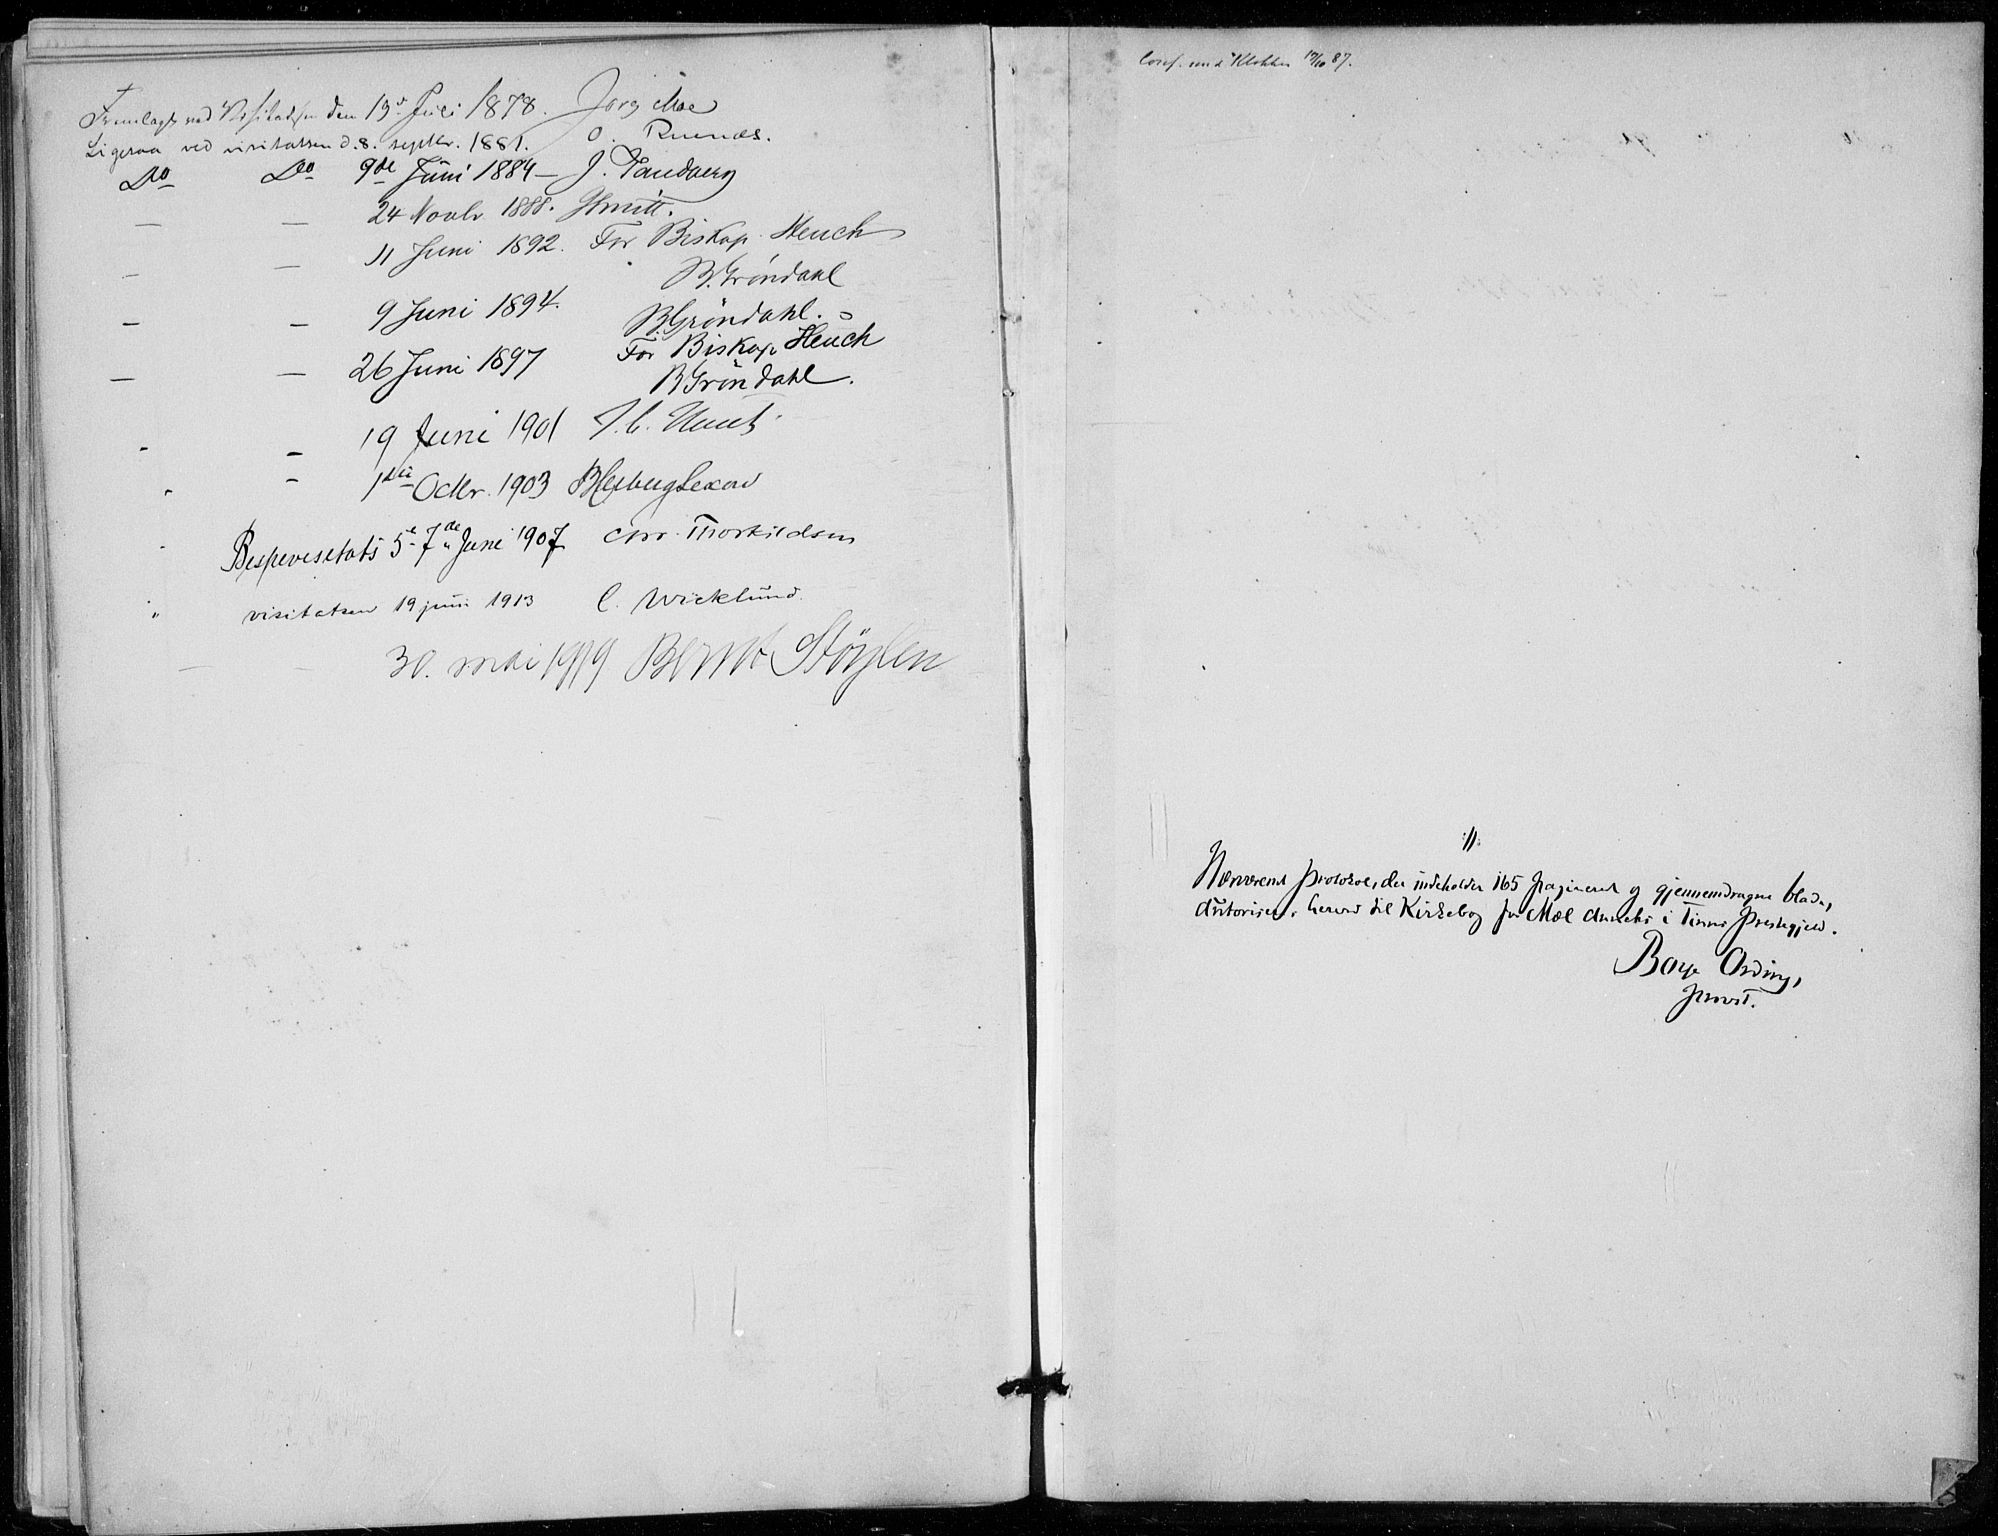 Fremlagt ved Visitatsen den 19de Juli 1878. Jørg Moe
Ligesaa ved visitatsen d. 8. septbr. 1881. O. Ruenæs.
Do Do 9de Juni 1884 - J. Sandberg
— — 24 Novbr 1888. Smitt.
— — 11 Juni 1892. For Biskop Heuch
B. Gröndahl
— — 9 Juni 1894. B. Gröndahl.
— — 26 Juni 1897 For Biskop Heuch
B Gröndahl.
" — 19 Juni 1901 J. C. Heuch
" — 1ste Octbr. 1903 B Hesberg Lexow
" Bispevisitats 5te-7de Juni 1907 Chr. Thorkildsen
" visitatsen 19 juni 1913 C. Wicklund.
— — 30. mai 1919 Bernt Støylen
Conf. med Klokker 17/10 87.
://:
Nærværende Protokol, der indeholder 165 paginerede og gjennemdragne blade,
autoriseres herved til Kirkebog for Mæl Annex i Tinns Præstegjeld.
Boye Ording,
provst.